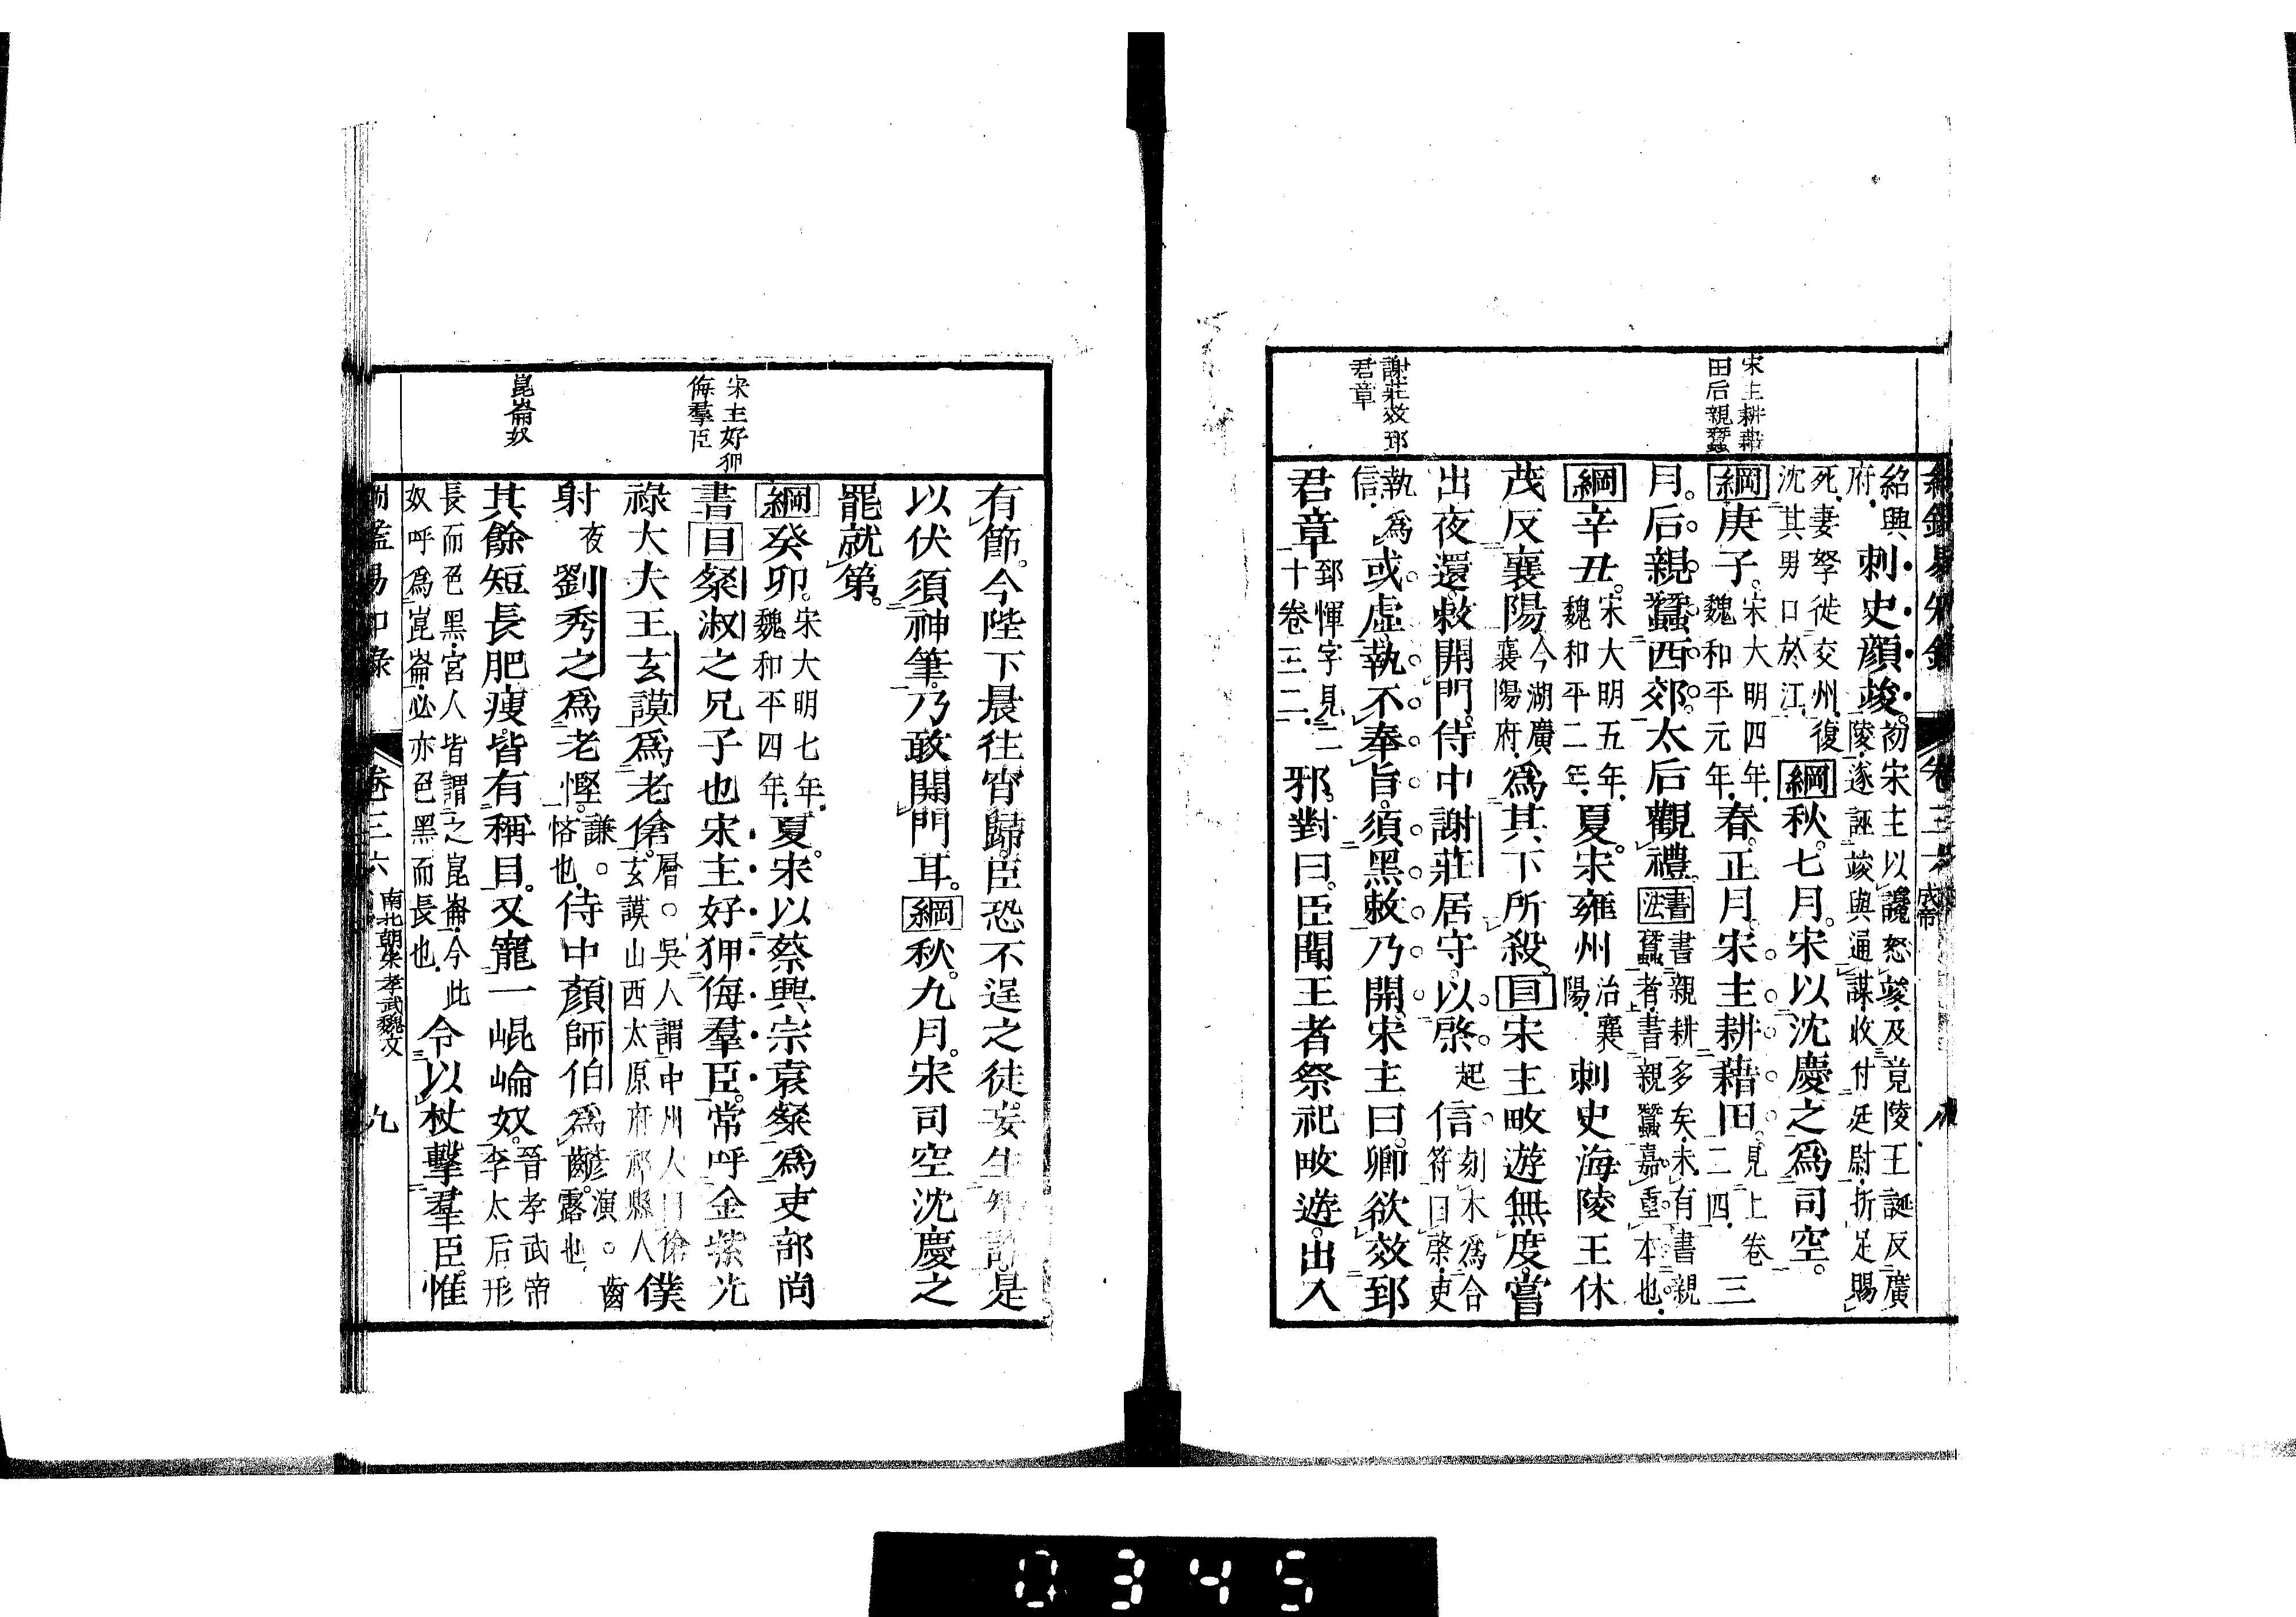 宋主耕藉
田后親蠶
謝莊效郅
君章
紹興
府刺史顏竣初宋主以讒怒竣及竟陵王誕反廣
陵遂誣竣與通謀收付廷尉折足賜
死妻孥徙交州復
沈其男口於江綱秋七月宋以沈慶之爲司空
綱庚子宋大明四年
魏和平元年春正月宋主耕藉田見上卷
二四三
月后親蠶西郊太后觀禮書法書親耕多矣未有書親
蠶者書親蠶嘉重本也
綱辛丑宋大明五年
魏和平二年夏宋雍州治襄
陽刺史海陵王休
茂反襄陽今湖廣
襄陽府爲其下所殺目宋主畋遊無度嘗
出夜還敕開門侍中謝莊居守以棨起信刻木爲合
符曰棨吏
執爲
信或虛執不奉旨須黑敕乃開宋主曰卿欲效郅
君章郅惲字見二
十卷三二邪對曰臣聞王者祭祀畋遊出入
八
宋主好狎
侮羣臣
崑崙奴
有節今陛下晨往宵歸臣恐不逞之徒妄生矯詐是
以伏須神筆乃敢開門耳綱秋九月宋司空沈慶之
罷就第
綱癸卯宋大明七年
魏和平四年夏宋以蔡興宗袁粲爲吏部尚
書目粲淑之兄子也宋主好狎侮羣臣常呼金紫光
祿大夫王玄謨爲老傖層○吳人謂中州人曰傖
玄謨山西太原府祁縣人僕
射夜劉秀之爲老慳謙○
悋也侍中顏師伯爲齴彥演○齒
露也
其餘短長肥瘦皆有稱目又寵一崐崘奴晉孝武帝
李太后形
長而色黑宮人皆謂之崑崙今此
奴呼爲崑崙必亦色黑而長也令以杖擊羣臣惟
卷三六
南北朝宋孝武魏文
九
0345